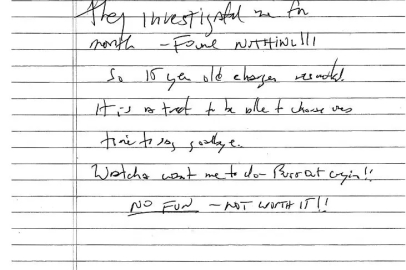 they investigated me for
month - Found NOTHING!!!
So 15 year old charges resulted.
It is a treat to be able to choose
time to say goodbye.
want me to do Burst out crying!!
NO FUN - NOT WORTH IT!!